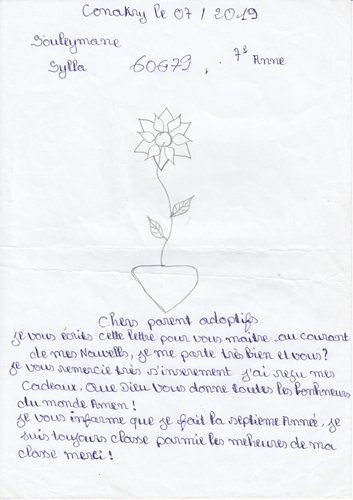 Conakry le 07 / 2019
Souleymane
Sylla 60679, 7è Anne
Chers parent adoptifs
je vous écrits cette lettre pour vous maitre au courant
de mes Nouvells, je me parte très bien et vous?
je vous remercie très sinserement j'ai reçu mes
Cadeaux, Que Dieu vous donne toutes les bonheures
du monde Amen!
je vous informe que je fait la septieme Année, je
suis toujours classe parmie les meheures de ma
classe merci!